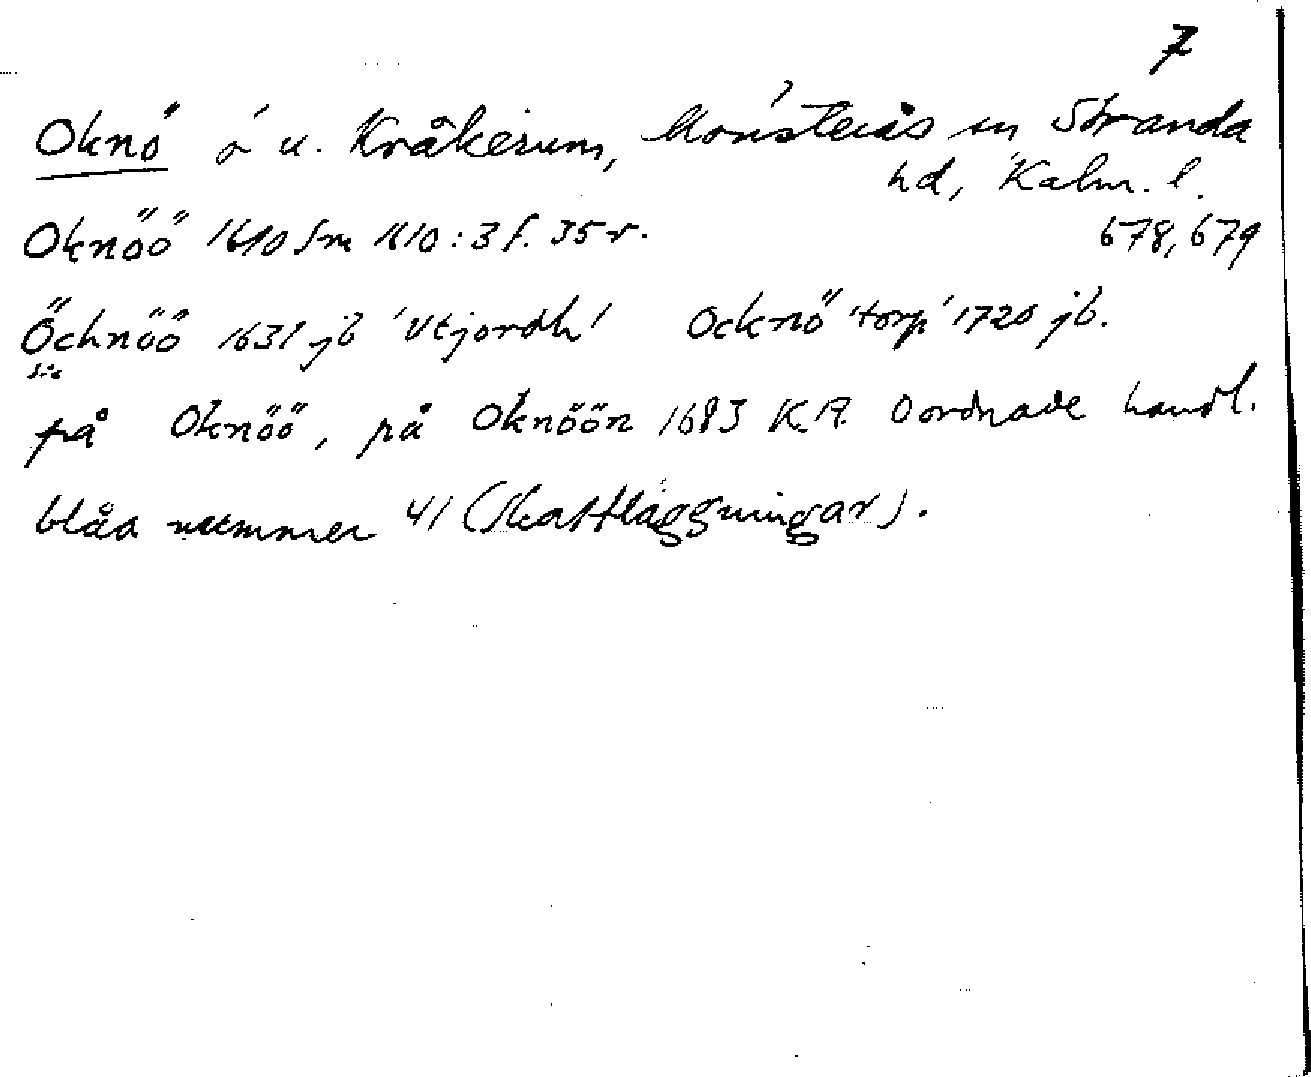 7
Oknö ö u. Kråkerum, Mönsterås sn Stranda
hd, Kalm. l.
Oknöö 1610 Sm 1610:3 f. 35 r. 678, 679
Öchnöö 1631 jb 'Utjordh' Ocknö 'torp' 1720 jb.
sic
på Oknöö, på Oknöön 1683 K.A. Oordnade handl.
blåa nummer 41 (Skattläggningar).